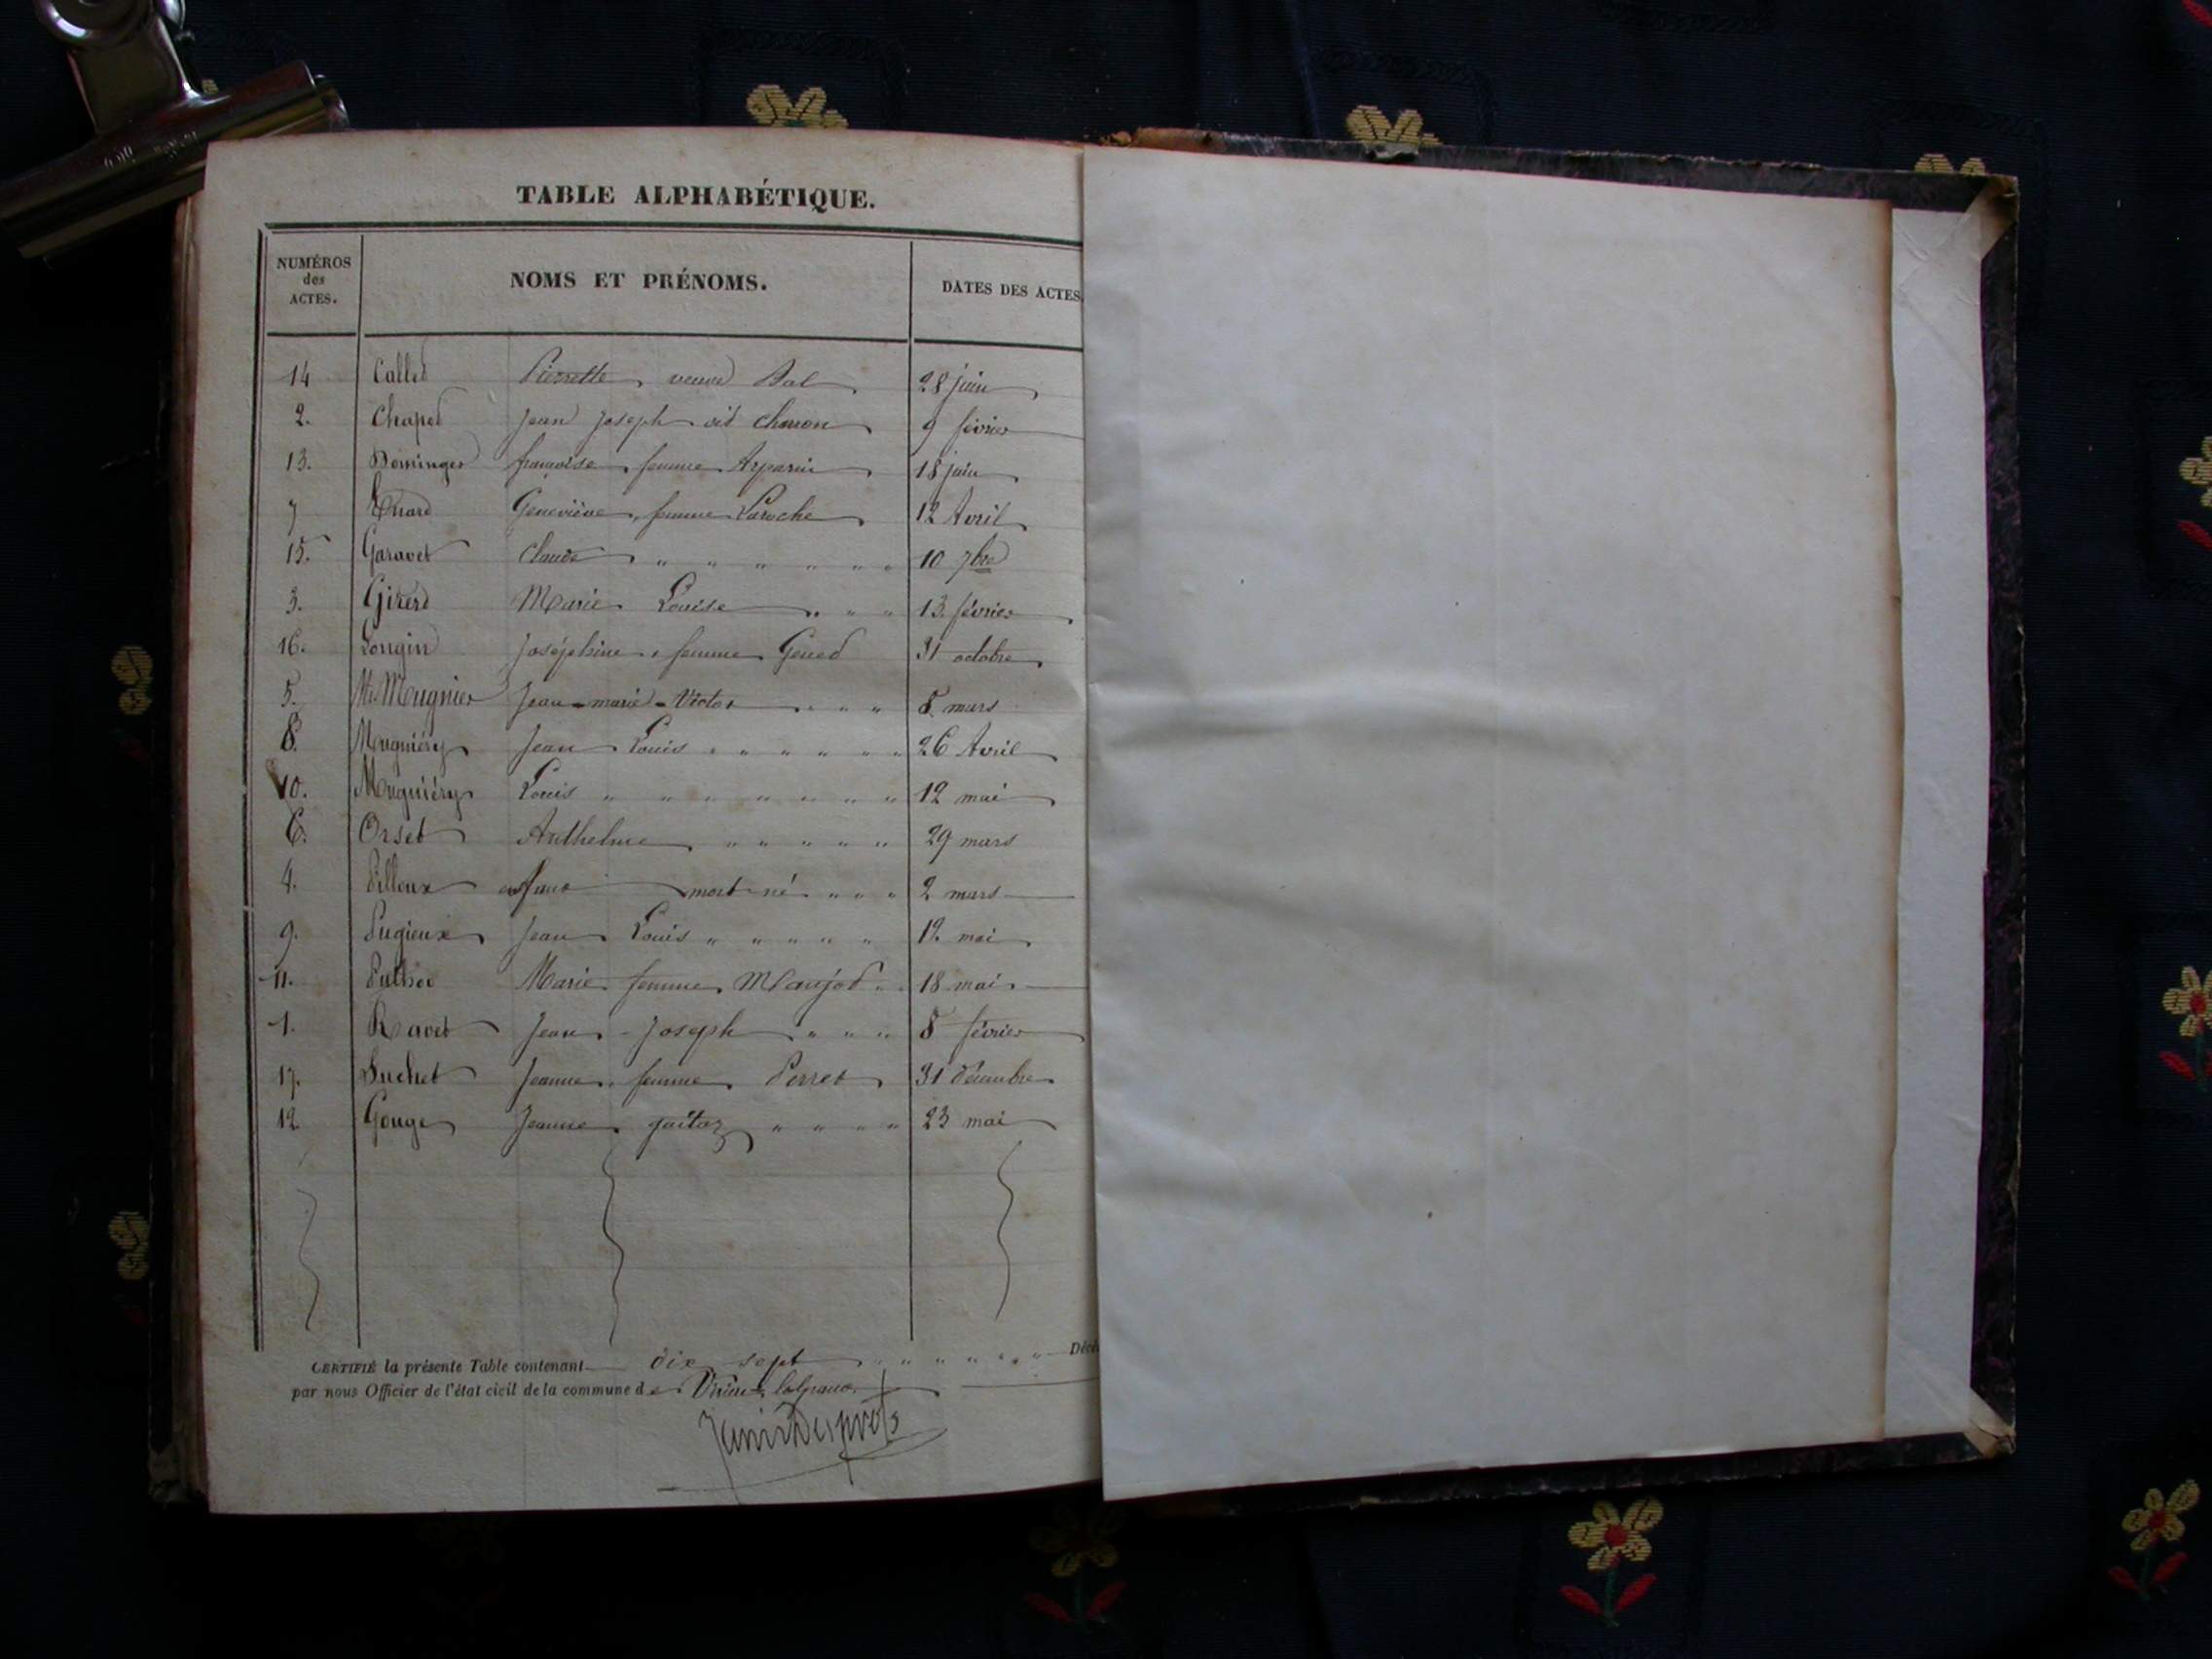 TABLE ALPHABÉTIQUE.
NUMÉROS des ACTES. NOMS ET PRÉNOMS. DATES DES ACTES.
14 Callet Pierrette, veuve Bal 28 juin
2. Chapel Jean Joseph dit 9 février
13. françoise, femme 18 juin
7 Geneviève, femme Laroche 12 Avril
15. Garavet Claude " " " " " " 10 7bre
3. Girerd Marie Louise " " " 13. février
16. Longin Joséphine, femme 31 octobre
5. Mugnier Jean-marie-Victor " " " 8 mars
8. Mugniéry Jean Louis " " " " " " 26 Avril
10. Mugniéry Louis " " " " " " " 12 mai
6. Orset Anthelme " " " " " 29 mars
4. Pilloux enfant mort-né " " " 2 mars
9. Pugieux Jean Louis " " " " " 12. mai
11. Marie femme Maujod " 18 mai
1. Ravet Jean-Joseph " " " 8 février
17. Suchet Jeanne, femme Perret 31 décembre
12 Gouge Jeanne " " " " 23 mai
CERTIFIÉ la présente Table contenant dix sept " " " " " " Décè
par nous Officier de l'état civil de la commune de